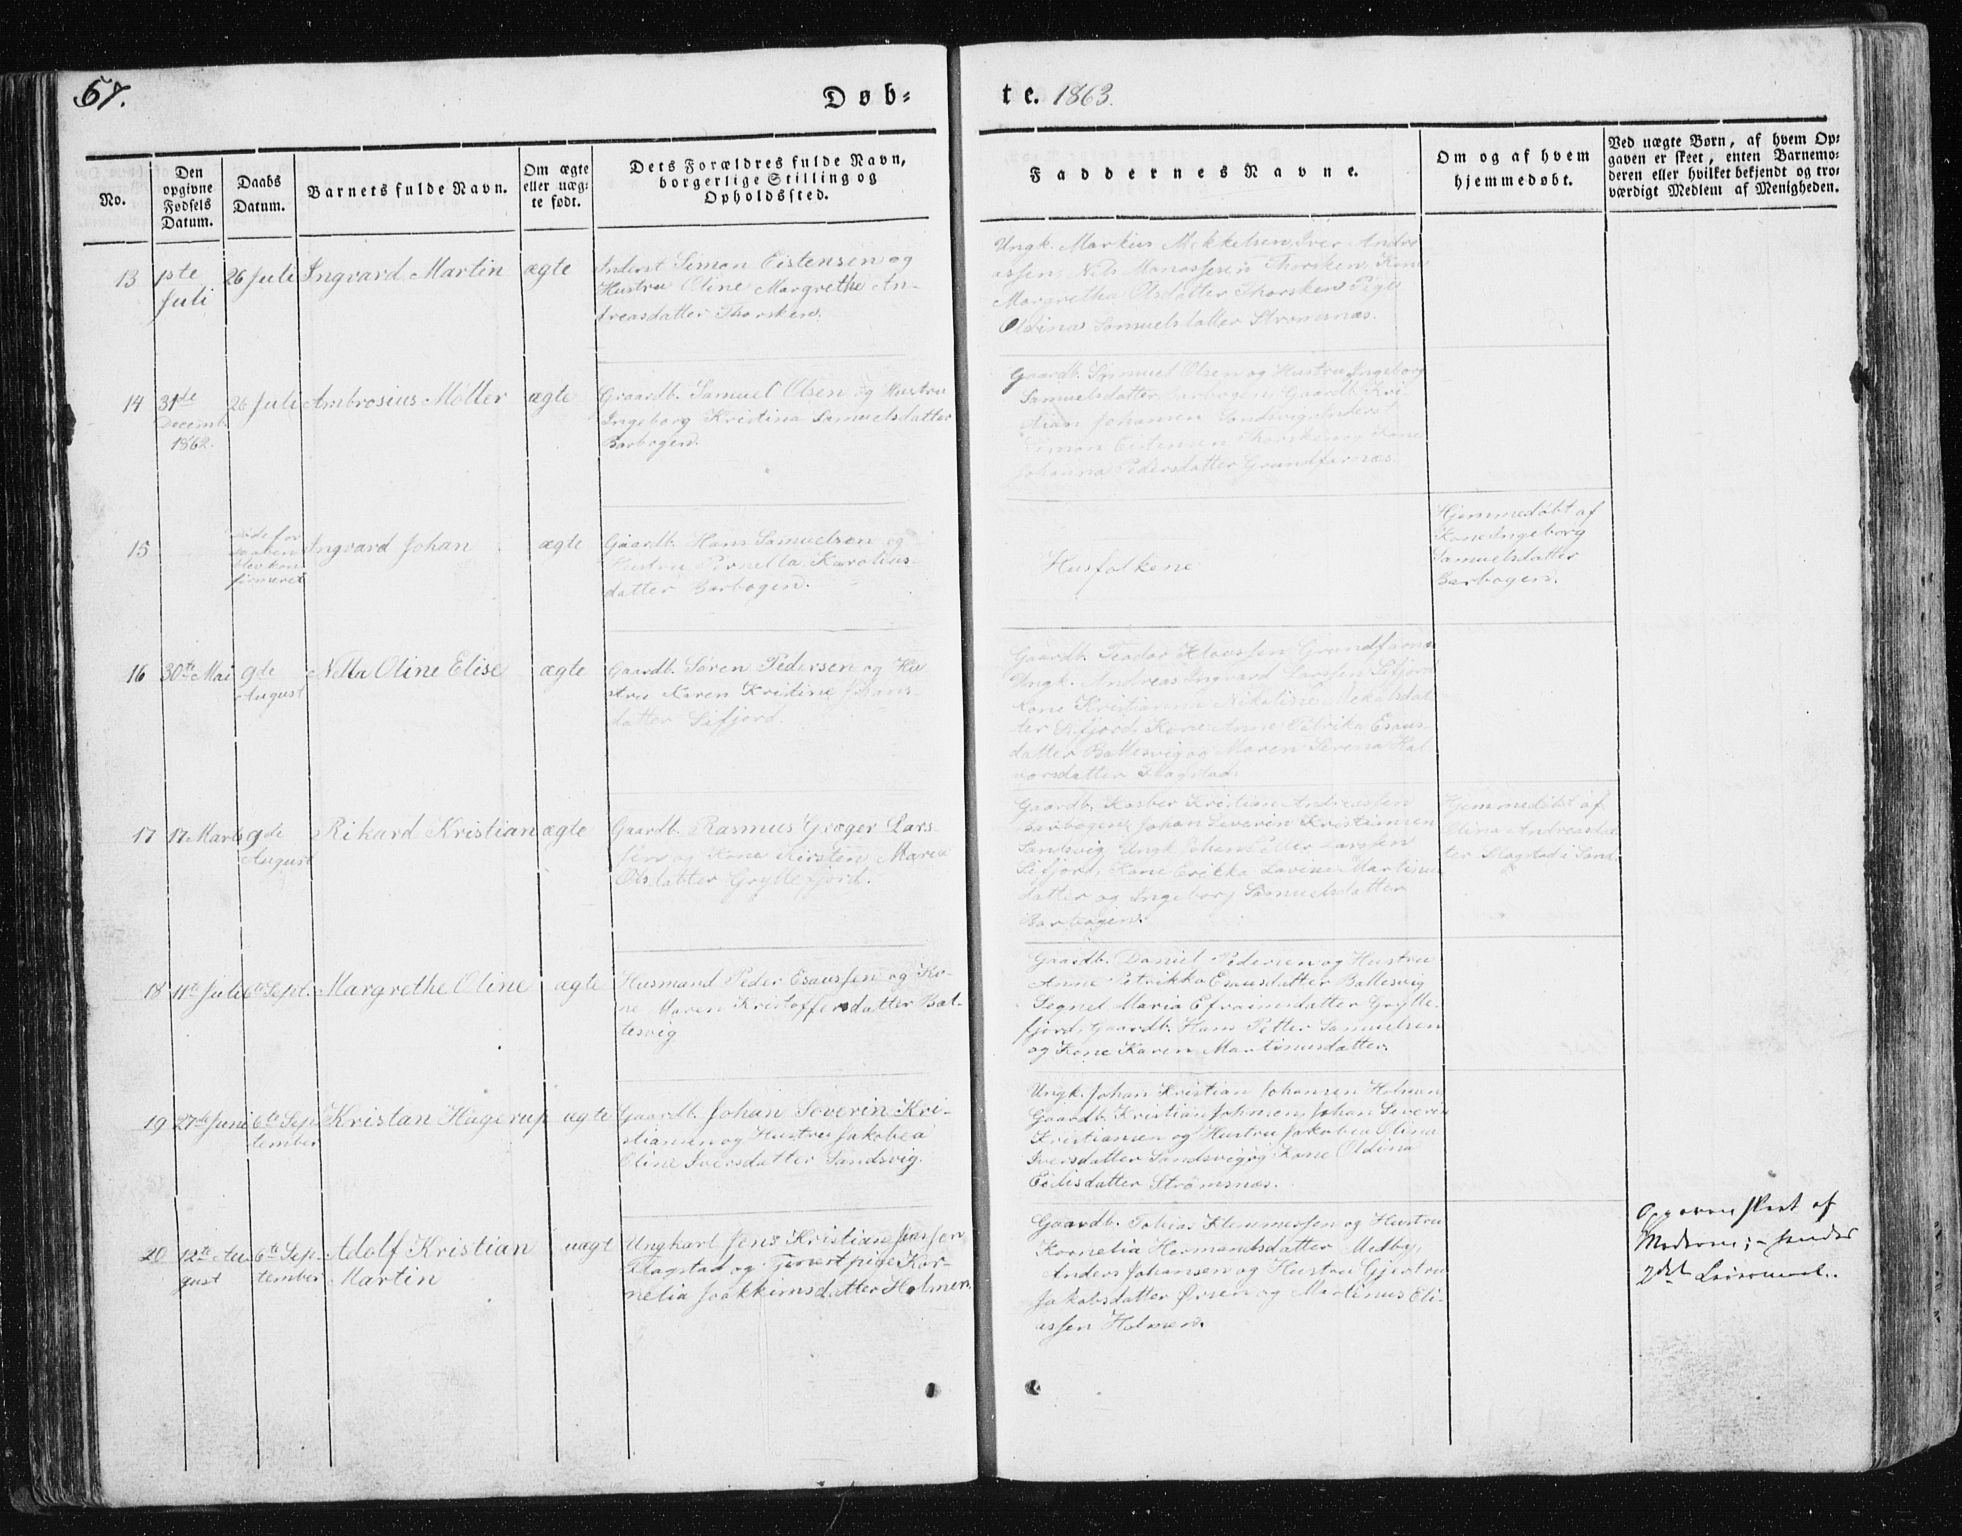 57.
Døb-
te. 1863.
No.
Den opgivne Fødsels Datum.
Daabs Datum.
Barnets fulde Navn.
Om ægte eller uægte født.
Dets Forældres fulde Navn, borgerlige Stilling og Opholdssted.
Faddernes Navne.
Om og af hvem hjemmedøbt.
Ved uægte Børn, af hvem Op-
gaven er skeet, enten Barnemo-
deren eller hvilket bekjendt og tro-
værdigt Medlem af Menigheden.
13 1ste Juli
26 Juli
Ingvard Martin
ægte
Inderst Simon Eistensen og
Hustru Oline Margrethe An-
dreasdatter Thorsken.
Ungk. Markus Mekkelsen, Iver Andre
assen, Nils Monassesen Thorsken, Kone
Margretha Olsdatter Thorsken Pige
Oldina Samuelsdatter Strømsnæs.
14 31te Decemb. 1862.
26 Juli
Ambrosius Møller
ægte
Gaardb. Samuel Olsen og Hustru
Ingeborg Kristina Samuelsdatter
Barbogen.
Gaardb. Samuel Olsen og Hustru Ingeborg
Samuelsdatter Barbogen, Gaardb. Kri-
stian Johansen Sandsvig, Inderst
Simon Eistensen Thorsken og Kone
Johanna Pedersdatter Grundfarnæs.
15
blev kon
firmeret
Ingvard Johan
ægte
Gaardb. Hans Samuelsen og
Hustru Pernella Karolius-
datter Barbogen.
Husfolkene
Hjemmedøbt af
Kone Ingeborg
Samuelsdatter
Barbogen.
16 30te Mai
9de August
Nella Oline Elise
ægte
Gaardb. Søren Pedersen og Hu
stru Karen Kristine Johans-
datter Sifjord.
Gaardb. Teodor Klaussen Grundfarnæs
Ungk. Andreas Ingvard Larssen Sifjord
Kone Kristianna Nikoline Mekalsdat
ter Sifjord, Kone Anne Petrika Esaus-
datter Ballesvig og Maren Serena Hal
vorsdatter Flagstad.
17 17 Marts
9de August
Rikard Kristian
ægte
Gaardb. Rasmus Grøger Lars-
sen og Kone Kirsten Marea
Olsdatter Gryllefjord.
Gaardb. Kasber Kristian Andreassen
Barbogen, Johan Severin Kristiansen
Sandsvig, Ungk. Johan Peter Larssen
Sifjord, Kone Erikka Lavina Martinus
datter og Ingeborg Samuelsdatter
Barbogen.
Hjemmedøbt af
Olina Andreasdat
ter Flagstad i Sand.
18 11te Juli
6te Sept.
Margrethe Oline
ægte
Husmand Peder Esaussen og Ko-
ne Maren Kristoffersdatter Bal-
lesvig
Gaardb. Daniel Pedersen og Hustru
Anne Petrikka Esausdatter Ballesvig
Segnel Maria Efraimsdatter Grylle-
fjord, Gaardb. Hans Petter Samuelsen
og Kone Karen Martinusdatter.
19 27de Juni
6te Sep-
tember
Kristan Hagerup
ægte
Gaardb. Johan Severin Kri-
stiansen og Hustru Jakobea
Oline Iversdatter Sandsvig.
Ungk. Johan Kristian Johansen Holmen,
Gaardb. Kristian Johnsen, Johan Severin
Kristiansen og Hustru Jakobea Olina
Iversdatter Sandsvig og Kone Oldina
Eilisdatter Strømsnæs.
20 12te Au
gust
6te Sep-
tember
Adolf Kristian
Martin
uægt
Ungkarl Jens Kristian Jensen
Flagstad og Tjenestpige Kor-
nelia Joakkimsdatter Holmen.
Gaardb. Tobias Klemmessen og Hustru
Kornelia Hermandsdatter Medby,
Anders Johansen og Hustru Gjertru
Jakobsdatter Ørsen og Martinus Eli-
assen Holmen.
Opgaven skeet af
Moderen; – hendes
2det Leiermaal.